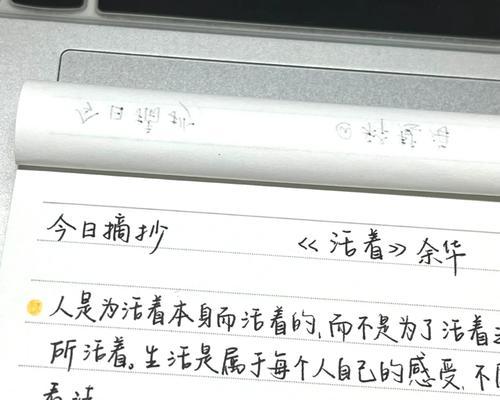 今日摘抄
今日摘抄 《活着》余华
人是为活着本身而活着的,而不是为了活着
所活着。生活是属于每个人自己的感受,不
看法